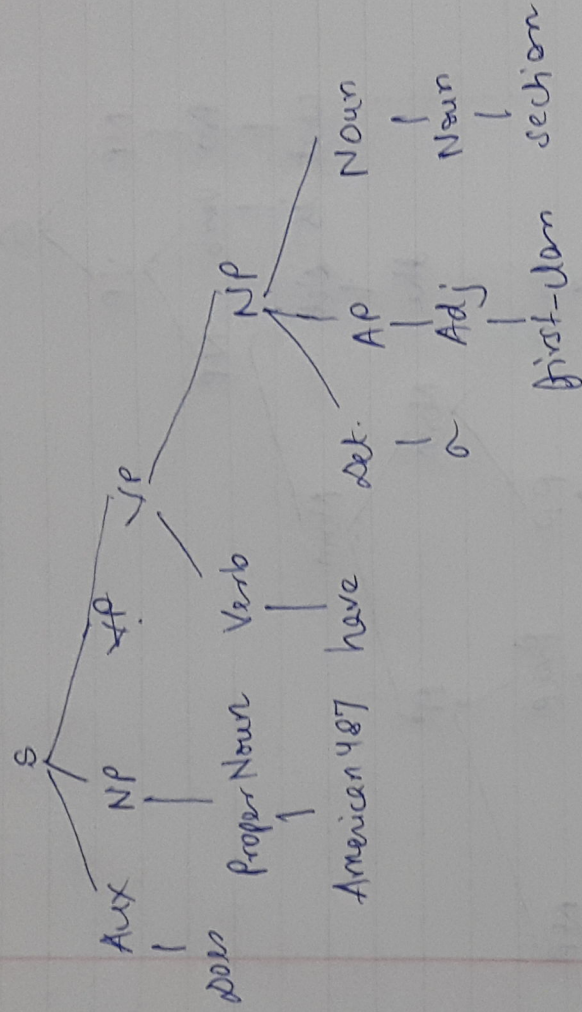 S
Aux NP VP
Does Proper Noun Verb NP
American 487 have Det. AP Noun
a Adj Noun
first-class section